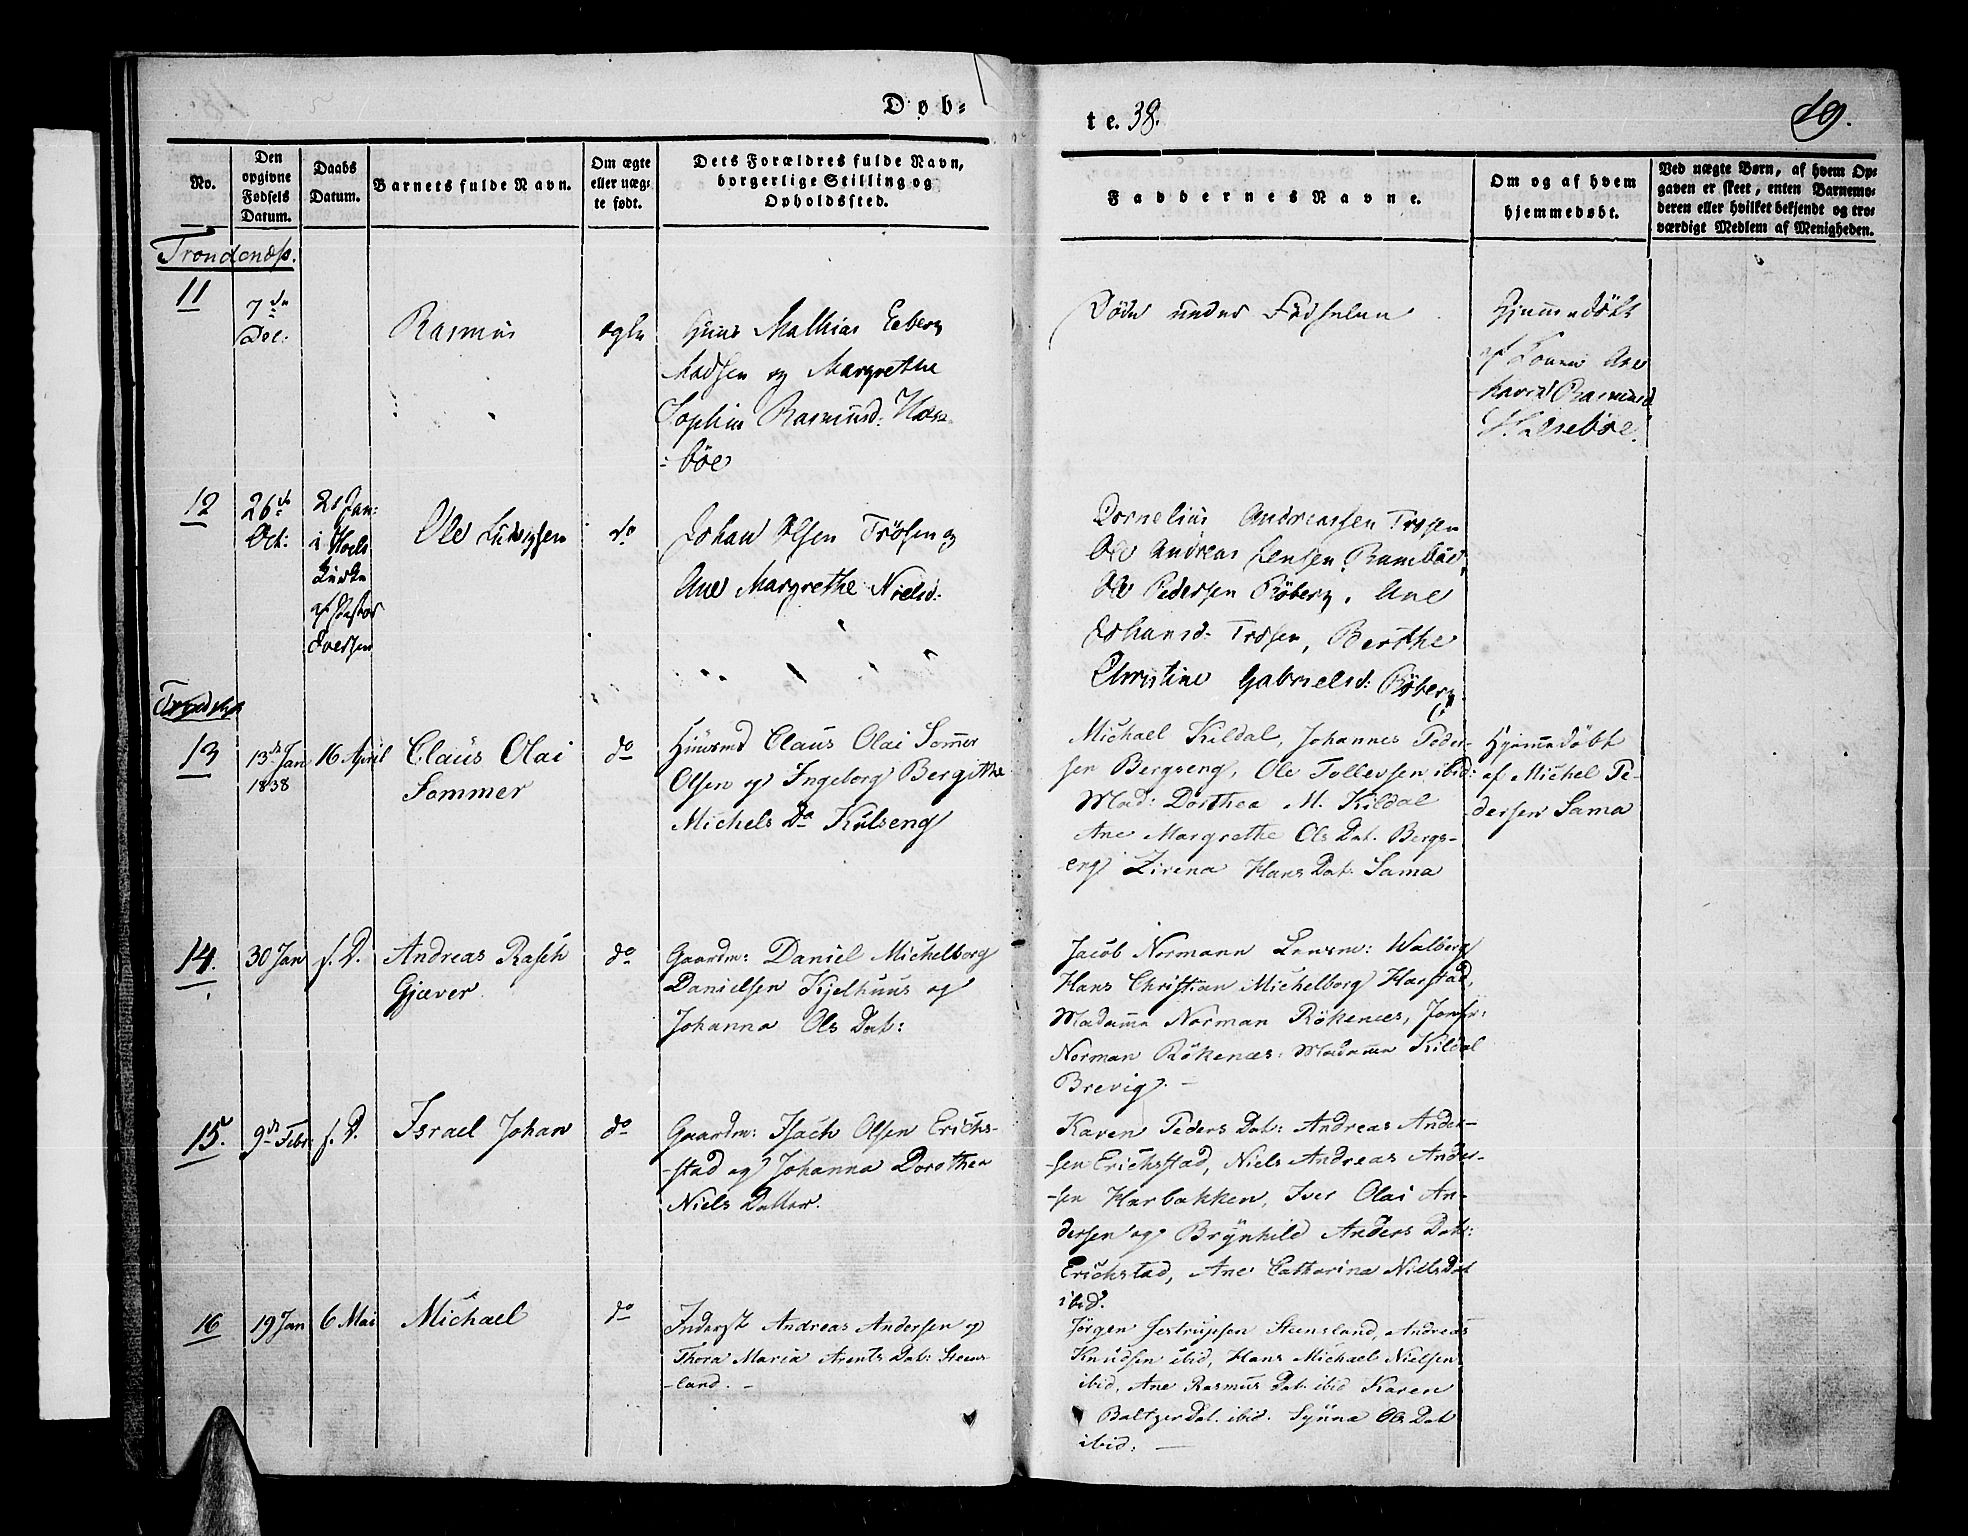 Døb=
te. 38.
19.
No.
Den
opgivne
Fødsels
Datum.
Daabs
Datum.
Barnets fulde Navn.
Om ægte
eller uæg-
te født.
Dets Forældres fulde Navn,
borgerlige Stilling og
Opholdssted.
Faddernes Navne.
Om og af hvem
hjemmedøbt.
Ved uægte Børn, af hvem Op-
gaven er skeet, enten Barnemo-
deren eller hvilket bekjendt og tro-
værdigt Medlem af Menigheden.
Trondenæs.
11
7de
Dec:
Rasmus
ægte
Mathias Eeberg
Madsen og Margrethe
Sophie Rasmusd:
bøe
Døde under Fødselen
Hjemmedøbt
af Konen Ane
Rasmusd
12
26de
Oct:
21 Jan:
i
Kirke
af Pastor
Iversen
Ole Ludvigsen
do
Johan Olsen Trøsen og
Ane Margrethe Nielsd:
Cornelius Andreassen Trøsen
Ole Andreas Jensen Rambøe
Ole Pedersen Røberg, Ane
Johansd: Trøsen, Berthe
Christine Gabrielsd: Røberg.
13
13de Jan
1838
16 April
Claus Olai
Sommer
do
Huusmd Claus Olai Sommer
Olsen og Ingeborg Bergithe
Michels Da Kulseng
Michael Kildal, Johannes Peder-
sen Bergseng, Ole Tollevsen ibid:
Mad: Dorthea M. Kildal
Ane Margrethe Ols Dat. Bergs-
eng Zirena Hans Dat: Sama
Hjemmedøbt
af Michel Pe-
dersen Sama
14.
30 Jan
s. D.
Andreas Rasch
Gjæver.
do
Gaardm: Daniel Michelborg
Danielsen Kjelhuus og
Johanna Ols Dat:
Jacob Normann Lensm: Walberg
Hans Christian Michelborg Harstad,
Madame Norman Rökenæs, Jomfr:
Norman Rökenæs: Madame Kildal
Brevig. -
15.
9de Febr:
s. D.
Israel Johan
do
Gaardm: Isach Olsen Erichs-
-stad og Johanna Dorothea
Niels Datter.
Karen Peders Dat: Andreas Ander-
-sen Erichsstad, Niels Andreas Ander-
-sen Harbakken, Iver Olai An-
dersen og Brynhild Anders Dat:
Erichstad, Ane Catharina Niels Dat
ibid.
16
19 Jan
6 Mai
Michael
do
Inderst Andreas Andersen og
Thora Maria Arents Dat: Steens-
-land. -
Jörgen Jestrupsen Steensland, Andreas
Knudsen ibid, Hans Michael Nielsen
ibid, Ane Rasmus Dat ibid Karen
Baltzer Dat. ibid. Synna Ols Dat
ibid: -